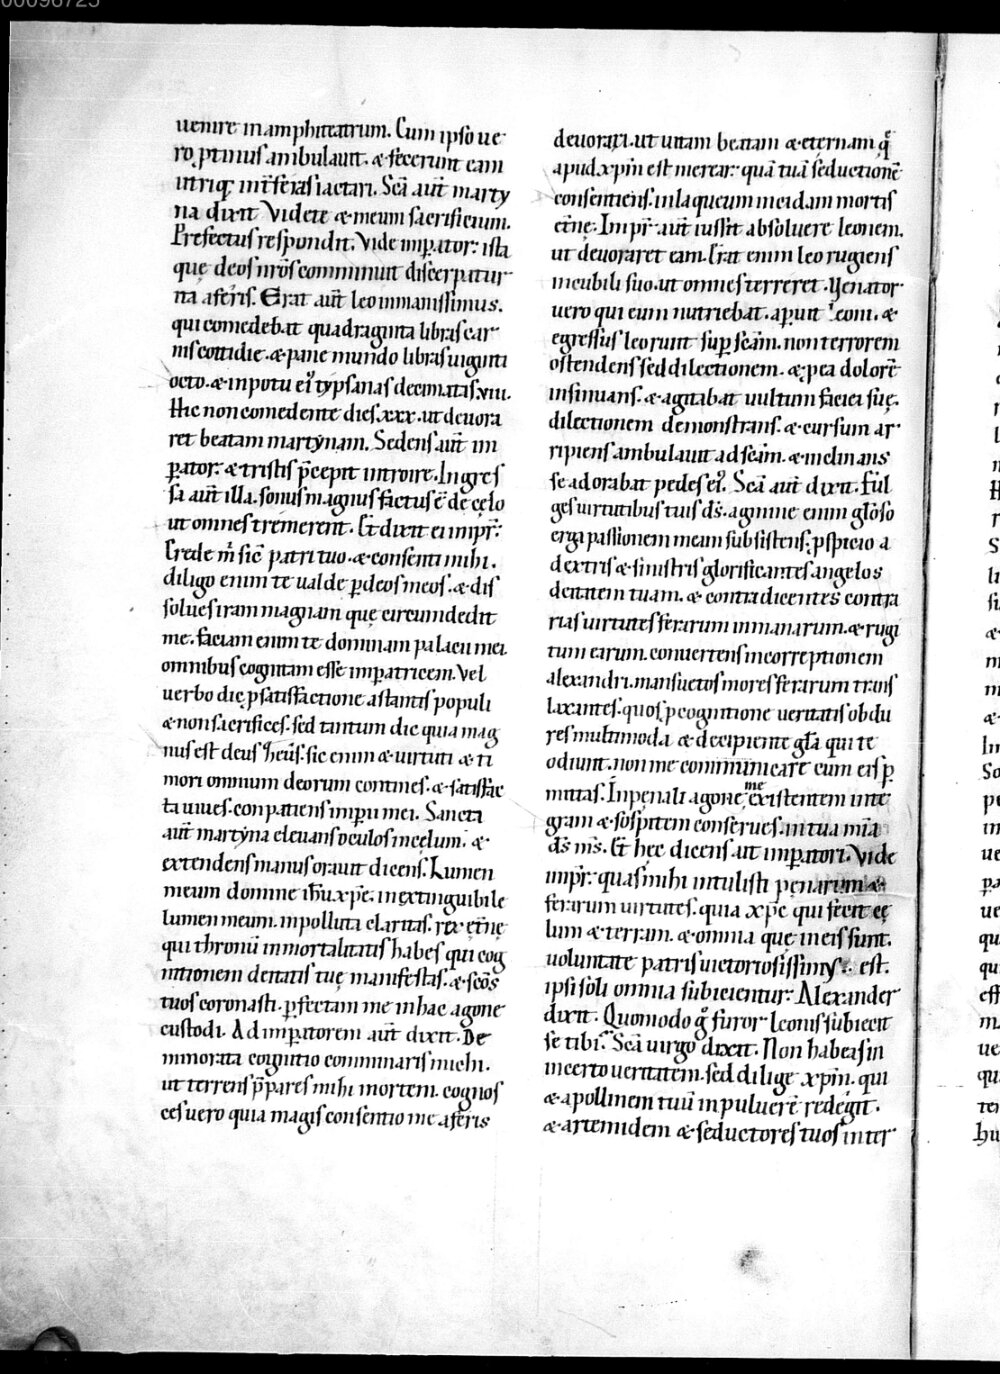 00098725
uenire in amphiteatrum. Cum ipso ue
ro ptinus ambulauit. & fecerunt eam
utriq; int̄ feras iactari. Scā aut̄ marty
na dixit Videte & meum sacrificium.
Prefectus respondit. Vide imp̄ator. ista
quę deos nr̄os comminuit discerpatur
na aferis. Erat aut̄ leo inmanissimus.
qui comedebat quadraginta libras car
nis cottidie. & pane mundo libras uiginti
octo. & inpotu ei' typsanas decimatas. viii.
Hic non comedente dies. xxx. ut deuora
ret beatam martynam. Sedens aut̄ im
p̄ator. & tristis p̄cepit introire. Ingres
sa aut̄ illa. sonus magnus factus ē de cęlo
ut omnes tremerent. Et dixit ei impr̄.
Crede m̄ sic̄ patri tuo. & consenti mihi.
diligo enim te ualde p̄ deos meos. & dis
solues iram magnam quę circumdedit
me. faciam enim te dominam palacii mei.
omnibus cognitam esse imp̄atricem. Vel
uerbo dic p satisfactione astantis populi
& non sacrifices. sed tantum dic quia mag
nus est deus heus. sic enim & uirtuti & ti
mori omnium deorum contines. & satisfac
ta uiues. conpatiens imp̄ii mei. Sancta
aut̄ martyna eleuans oculos in cęlum. &
extendens manus orauit dicens. Lumen
meum domine ihu xp̄e. inextinguibile
lumen meum. inpolluta claritas. rex et̄nę
qui thronū inmortalitatis habes qui cog
nitionem deitatis tuę manifestas. & scōs
tuos coronasti. p̄fectam me in hac agone
custodi. Ad imp̄atorem aut̄ dixit. De
minorata cognitio comminaris michi.
ut terrens p̄pares mihi mortem. cognos
ces uero quia magis consentio me aferis
deuorari. ut uitam beatam & eternam q̄
apud xpm̄ est merear. quā tuā seductionē
consentiens. in laqueum incidam mortis
et̄nę. Impr̄ aut̄ iussit absoluere leonem.
ut deuoraret eam. Erat enim leo rugiens
incubili suo. ut omnes terreret. Venator
uero qui eum nutriebat. ap̄uit leoni. &
egressus leo ruit sup̄ scām. non terrorem
ostendens sed dilectionem. & pea dolorē
insinuans. & agitabat uultum faciei suę.
dilectionem demonstrans. & cursum ar
ripiens ambulauit ad scām. & inclinans
se adorabat pedes ei'. Scā aut̄ dixit. Ful
ges uirtutibus tuis ds̄. agmine enim glōso
erga passionem meam subsistens. pspicio a
dextris & sinistris glorificantes angelos
deitatem tuam. & contradicentes contra
rias uirtutes ferarum inmanarum. & rugi
tum earum. conuertens incorreptionem
alexandri. mansuetos mores ferarum trans
laxantes. quos p cognitione ueritatis obdu
res multimoda & decipiente glā qui te
odiunt. non me communicare cum eis p̄
mittas. In penali agone me existentem inte
gram & sospitem conserues. in tua mīa
ds̄ ms̄. Et hec dicens ait imp̄atori. Vide
impr̄. quas mihi intulisti penarum &
ferarum uirtutes. quia xp̄c qui fecit cę
lum & terram. & omnia quę in eis sunt.
uoluntate patris uictoriosissimus. est.
ipsi soli omnia subicientur. Alexander
dixit. Quomodo g̊ furor leonis subiecit
se tibi. Scā uirgo dixit. Non habeas in
incerto ueritatem. sed dilige xpm̄. qui
& apollinem tuū in puluerē redegit.
& artemidem & seductores tuos inter